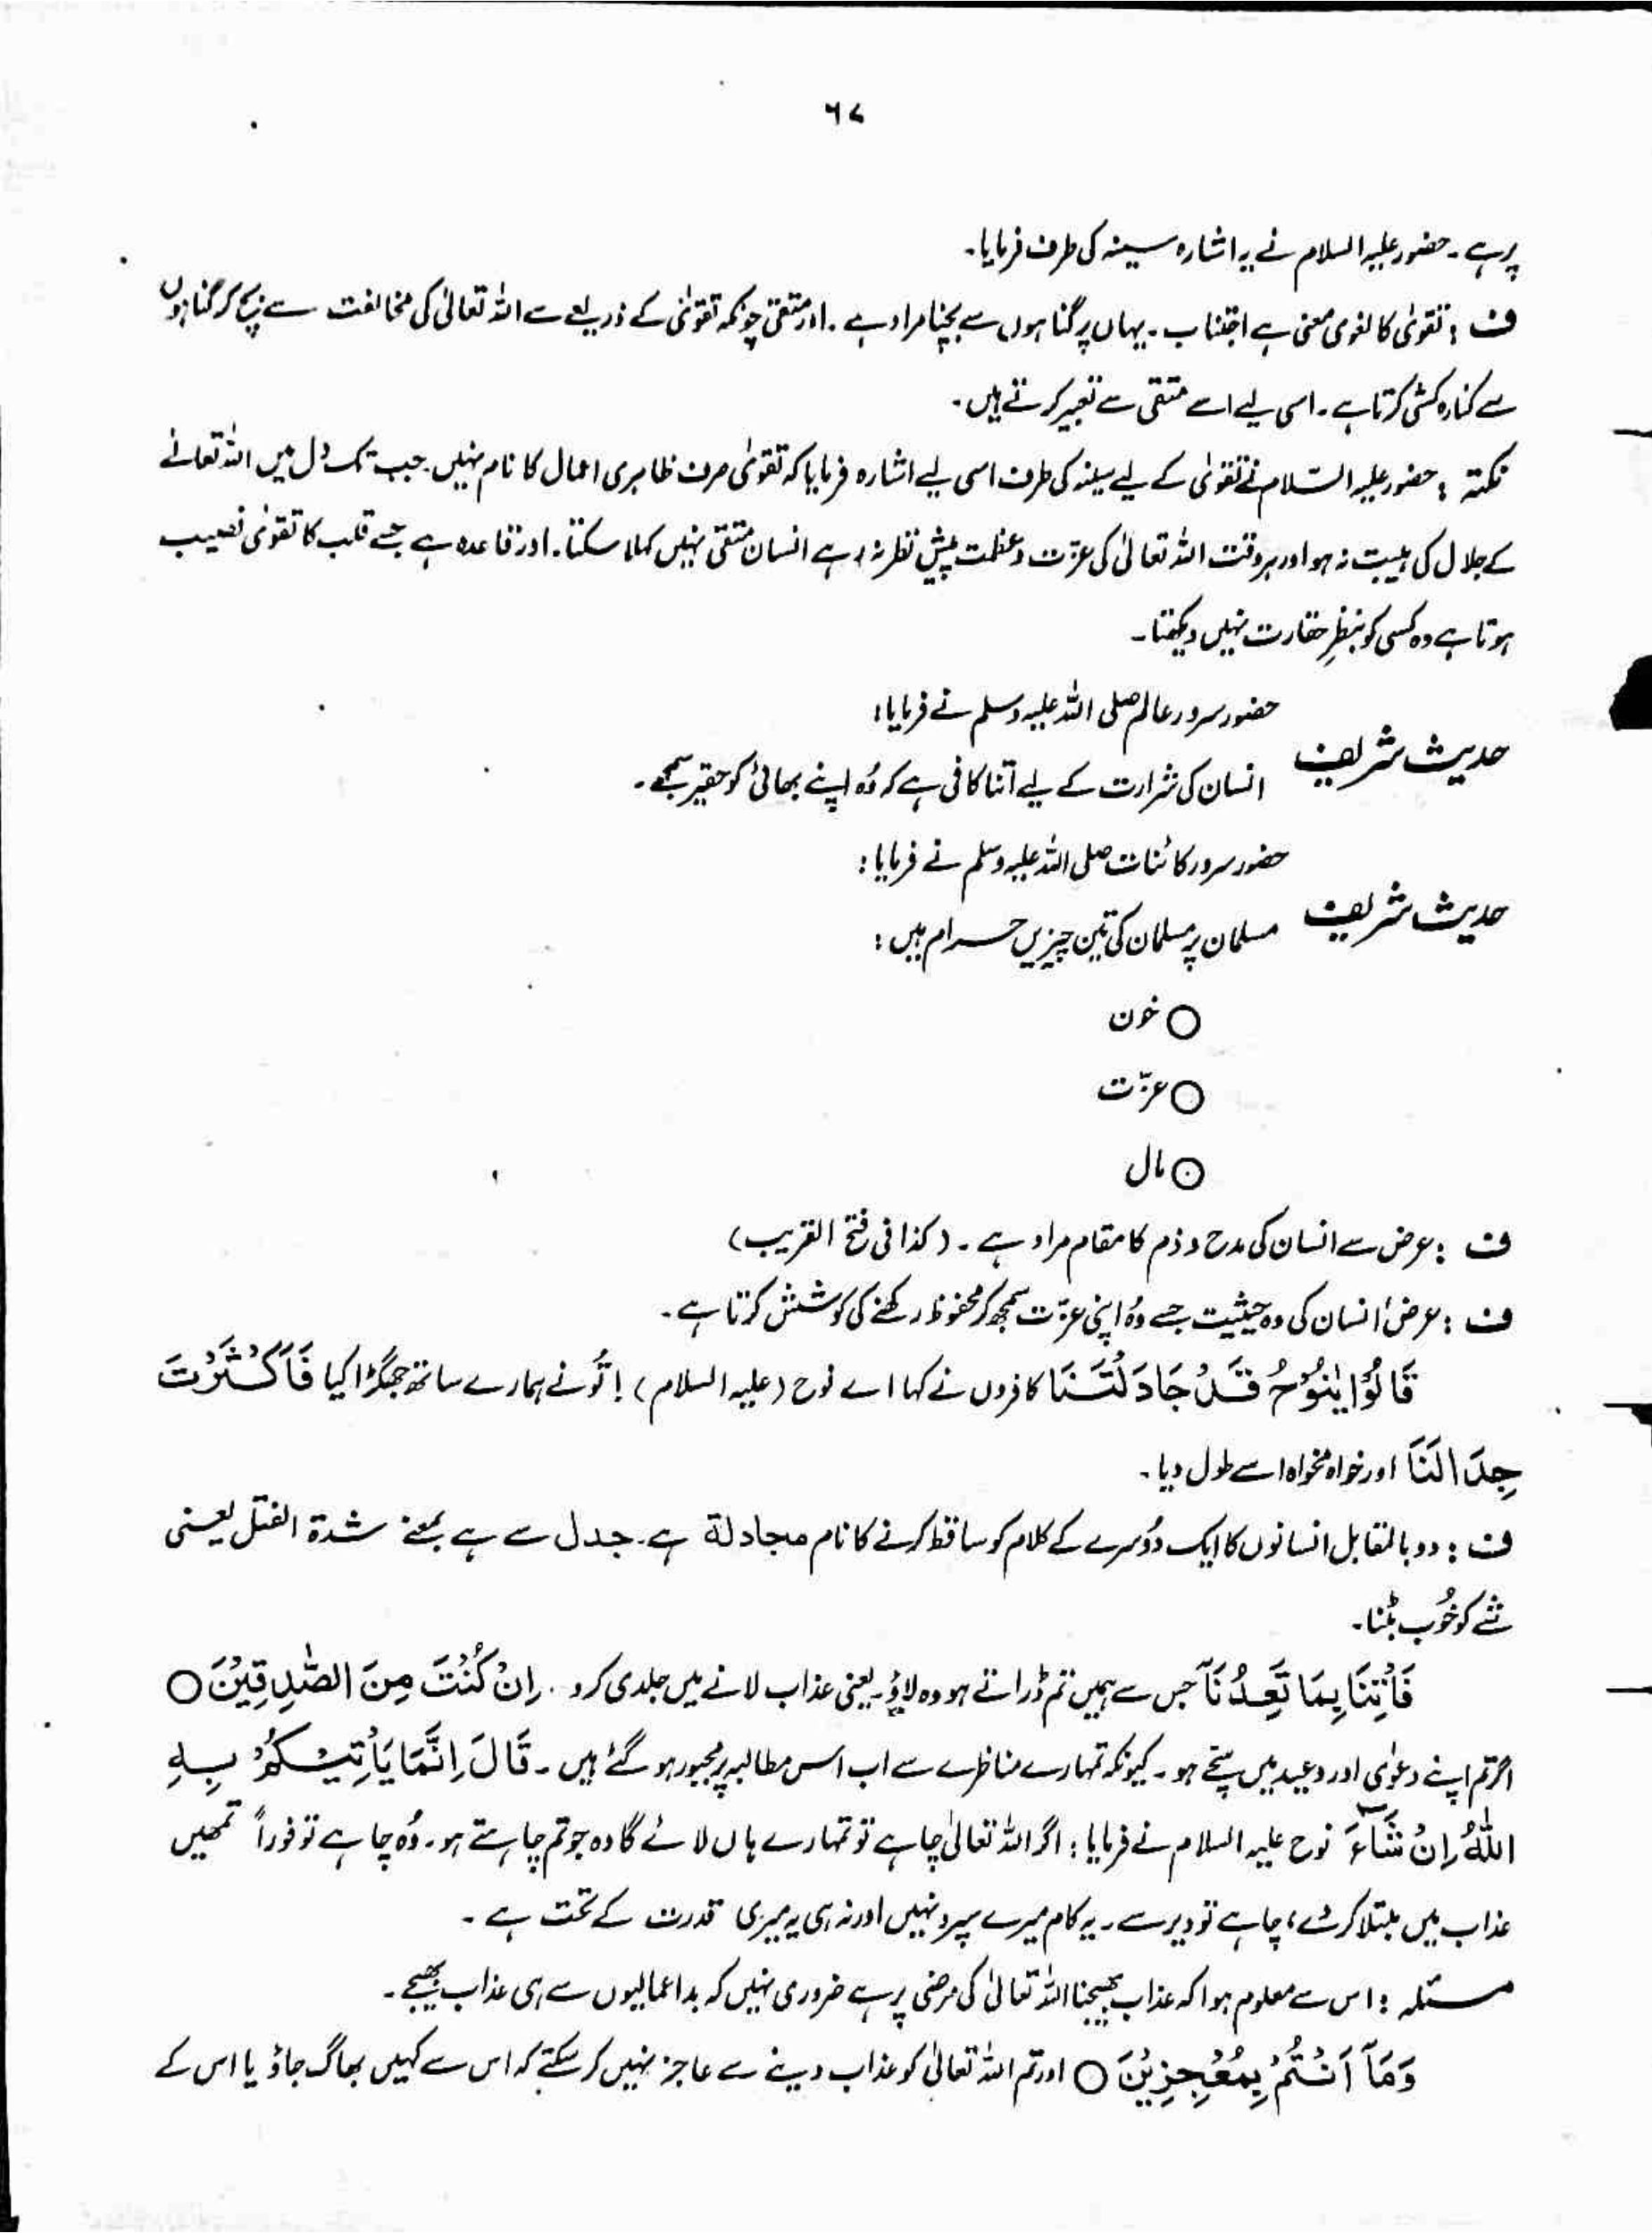 ۶۷
پر ہے۔ حضور علیہ السلام نے یہ اشارہ سینہ کی طرف فرمایا۔
ف : تقویٰ کا لغوی معنی ہے اجتناب۔ یہاں پر گناہوں سے بچنا مراد ہے۔ اور متقی چونکہ تقویٰ کے ذریعے سے اللہ تعالیٰ کی مخالفت سے بچ کر گناہوں
سے کنارہ کشی کرتا ہے۔ اسی لیے اسے متقی سے تعبیر کرتے ہیں۔
نکتہ : حضور علیہ السّلام نے تقویٰ کے لیے سینہ کی طرف اسی لیے اشارہ فرمایا کہ تقویٰ صرف ظاہری اعمال کا نام نہیں۔ جب تک دل میں اللہ تعالےٰ
کے جلال کی ہیبت نہ ہو اور ہر وقت اللہ تعالیٰ کی عزّت و عظمت پیشِ نظر نہ رہے انسان متقی نہیں کہلا سکتا۔ اور قاعدہ ہے جسے قلب کا تقویٰ نصیب
ہوتا ہے وہ کسی کو بنظرِ حقارت نہیں دیکھتا۔
حضور سرور عالم صلی اللہ علیہ وسلم نے فرمایا:
حدیث شریف انسان کی شرارت کے لیے اتنا کافی ہے کہ وُہ اپنے بھائی کو حقیر سمجھے۔
حضور سرور کائنات صلی اللہ علیہ وسلم نے فرمایا:
حدیث شریف مسلمان پر مسلمان کی تین چیزیں حرام ہیں:
○ خون
○ عزّت
○ مال
ف : عرض سے انسان کی مدح و ذم کا مقام مراد ہے۔ (کذا فی فتح القریب)
ف : عرض انسان کی وہ حیثیت جسے وُہ اپنی عزّت سمجھ کر محفوظ رکھنے کی کوشش کرتا ہے۔
قَالُوْا یٰنُوْحُ قَدْ جَادَلْتَنَا کافروں نے کہا اے نوح (علیہ السلام)! تُو نے ہمارے ساتھ جھگڑا کیا فَاَکْثَرْتَ
جِدَالَنَا اور خواہ مخواہ اسے طول دیا۔
ف : دو بالمقابل انسانوں کا ایک دُوسرے کے کلام کو ساقط کرنے کا نام مجادلة ہے۔ جدل سے ہے بمعنے شدة الفتل یعنی
شے کو خُوب بٹنا۔
فَأْتِنَا بِمَا تَعِدُنَآ جس سے ہمیں تم ڈراتے ہو وہ لاؤ۔ یعنی عذاب لانے میں جلدی کرو۔ اِنْ کُنْتَ مِنَ الصّٰدِقِیْنَ ○
اگر تم اپنے دعوٰی اور وعید میں سچّے ہو۔ کیونکہ تمہارے مناظرے سے اب اس مطالبہ پر مجبور ہو گئے ہیں۔ قَالَ اِنَّمَا یَأْتِیْکُمْ بِہِ
اللّٰہُ اِنْ شَآءَ نوح علیہ السلام نے فرمایا: اگر اللہ تعالیٰ چاہے تو تمہارے ہاں لائے گا وہ جو تم چاہتے ہو۔ وُہ چاہے تو فوراً تمھیں
عذاب میں مبتلا کر دے، چاہے تو دیر سے۔ یہ کام میرے سپرد نہیں اور نہ ہی یہ میری قدرت کے تحت ہے۔
مسئلہ : اس سے معلوم ہوا کہ عذاب بھیجنا اللہ تعالیٰ کی مرضی پر ہے ضروری نہیں کہ بداعمالیوں سے ہی عذاب بھیجے۔
وَمَآ اَنْتُمْ بِمُعْجِزِیْنَ ○ اور تم اللہ تعالیٰ کو عذاب دینے سے عاجز نہیں کر سکتے کہ اس سے کہیں بھاگ جاؤ یا اس کے